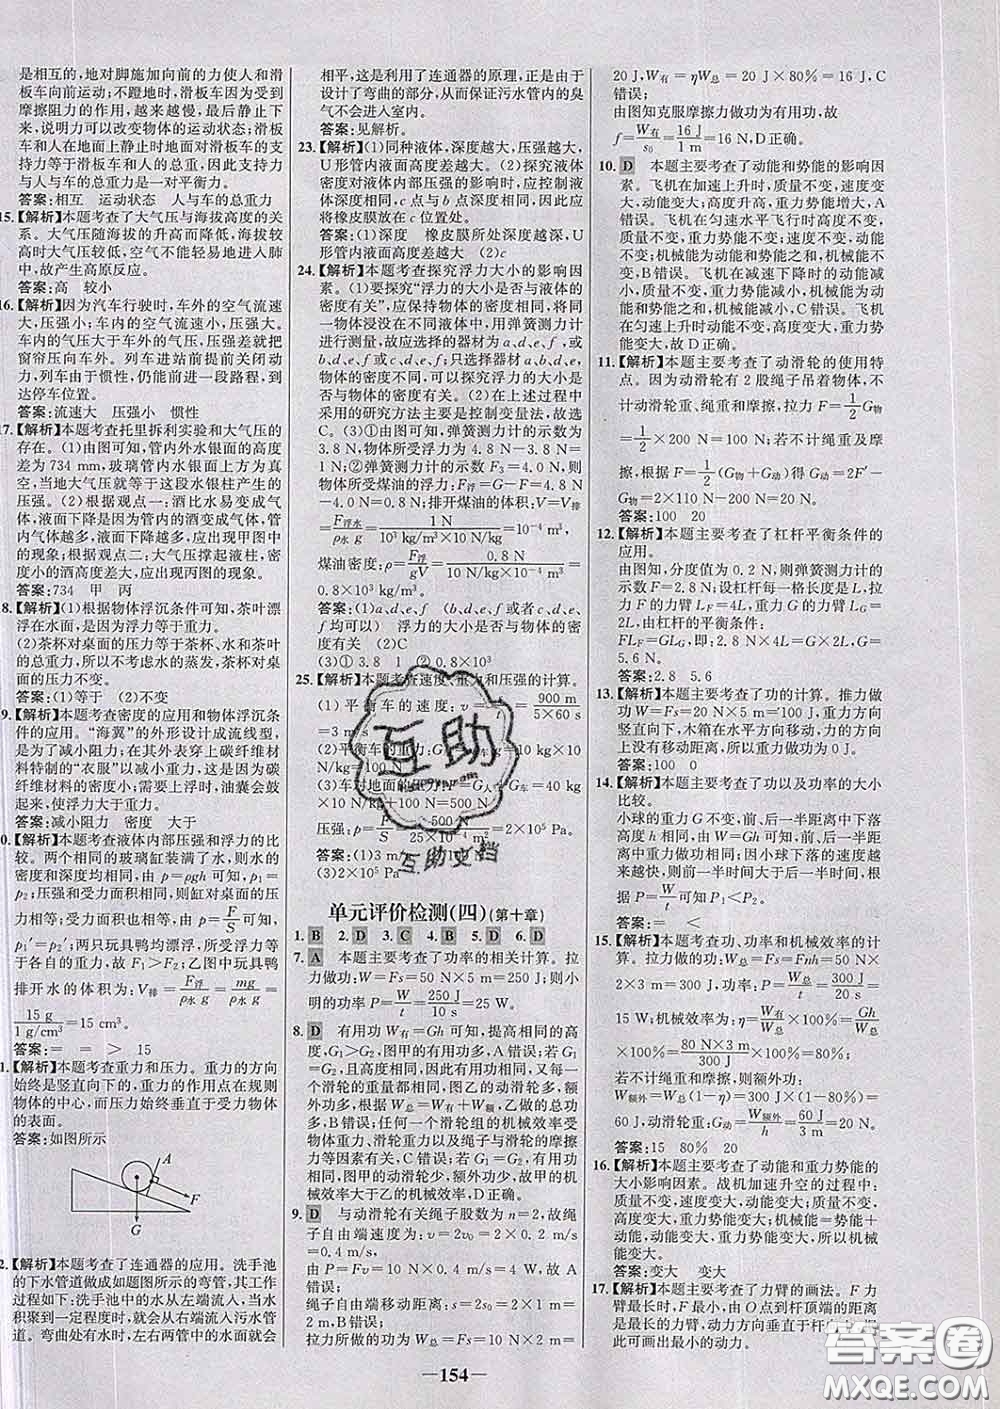 是相互的,地对脚施加向前的力使人和滑
板车向前运动;不蹬地时,滑板车因为受到
摩擦阻力的作用,越来越慢,最后静止下
来,说明力可以改变物体的运动状态;滑板
车和人在水平面上静止时地面对滑板车的
支持力等于滑板车和人的总重,因此支持力
与人与车的总重力是一对平衡力。
答案:相互 运动状态 人与车的总重力
15.【解析】本题考查了大气压与海拔高度的关
系。大气压随海拔的升高而降低,海拔较
高时大气压较低,空气不容易进入人的肺
中,故产生高原反应。
答案:高 较小
16.【解析】因为汽车行驶时,车外的空气流速
大,压强小;车内的空气流速小,压强大。
车内的气压大于车外的气压,压强差就把
窗帘压向车外。列车进站前提前关闭动
力,列车由于惯性,仍能前进一段路程,到
达停车位置。
答案:流速大 压强小 惯性
17.【解析】本题考查托里拆利实验和大气压的
存在。(1)由图可知,管内外水银面的高度
差为734 mm,玻璃管内水银面的上方是真
空,当地大气压就等于这段水银柱产生的
压强。(2)根据观点一:酒比水易变成气
体,液面下降是因为管内的酒变成气体,
管内气体越多,液面下降越多,应出现甲图中
的现象;根据观点二:大气压撑起液柱,密
度小的酒高度大,应出现丙图的现象。
答案:734 甲 丙
8.【解析】(1)根据物体浮沉条件可知,茶叶漂
浮在水面上,是因为浮力等于重力。
(2)茶杯对桌面的压力等于茶杯、水和茶叶
的总重力,所以如果不考虑水的蒸发,茶杯
对桌面的压力不变。
答案:(1)等于 (2)不变
9.【解析】本题考查密度的应用和物体浮沉条
件的应用。“海翼”的外形设计成流线型,
是为了减小阻力;在其外表穿上碳纤维材料
特制的“衣服”以减小重力,主要是因为碳
纤维材料的密度小;需要上浮时,油囊会鼓
起,使浮力大于重力。
答案:减小阻力 密度 大于
0.【解析】本题考查液体内部压强和浮力的比
较。两个相同的玻璃缸装满了水,则水的
密度和深度均相同,由 p=ρgh 可知,p₁=
p₂;压强和受力面积相同,则缸对桌面的压
力也相同,又因为受力面积相同,由 p=F/S 可知,
p₁′=p₂′;两只玩具鸭均漂浮,浮力大小等于重
力,故 F₁>F₂;乙图中玩具鸭
排开水的体积为:V排=F浮/(ρ水 g)=mg/(ρ水 g)=
15 g/(1 g/cm³)=15 cm³。
答案:= = > 15
1.【解析】本题考查重力和压力。重力的方向
始终是竖直向下的,重力的作用点在规则
物体的中心,而压力始终垂直于受力物体
的表面。
答案:如图所示
A
F
G
2.【解析】本题考查了连通器的应用。洗手池
的下水管道做成如题图所示的弯管,其工作
过程如下:洗手池中的水从左端流入,当水
积聚到一定程度时,就会从右端流入污水管
道。弯曲处有水时,左右两管中的水面就会
相平,这是利用了连通器的原理,正是由于
设计了弯曲的部分,从而保证污水管内的臭
气不会进入室内。
答案:见解析。
23.【解析】(1)同种液体,深度越大,压强越大,
U形管内液面高度差越大。(2)探究液体
密度对液体内部压强的影响时,应控制液
体深度相同,c点与b点深度相同,所以,
应将橡皮膜放在c位置处。
答案:(1)深度 橡皮膜所处深度越深,U
形管内液面高度差越大 (2)c
24.【解析】本题考查探究浮力大小的影响因
素。(1)要探究“浮力的大小是否与液体的
密度有关”,应保持物体的密度相同,将同
一物体浸没在不同液体中,用弹簧测力计进
行测量,故应选择的器材为a、d、e、f,或
b、d、e、f或c、d、e、f均可;只选择器材
a、b、d、e,物体的密度不同,可以探究浮力的大小
是否与物体的密度有关。(2)在上述过程中
采用的研究方法主要是控制变量法,故选
C。(3)①由图知,弹簧测力计的示数为
3.8 N,物体所受浮力为 4.8 N-3.8 N=
1 N;②弹簧测力计的示数 F₃=4.0 N,则
物体所受煤油的浮力:F浮=G-F=4.8 N
-4.0 N=0.8 N;排开煤油的体积:V=V排
=F浮水/(ρ水g)=1 N/(10³ kg/m³×10 N/kg)=10⁻⁴ m³,
煤油密度:ρ=F浮/(gV)=0.8 N/(10 N/kg×10⁻⁴ m³)=
0.8×10³ kg/m³。
答案:(1)a、d、e、f (b、d、e、f或者c、d、e、
f均可以) 浮力的大小是否与物体的密
度有关 (2)C
(3)①3.8 1 ②0.8×10³
25.【解析】本题考查速度、重力和压强的计算。
(1)平衡车的速度:v=s/t=900 m/(5×60 s)
=3 m/s。
=100 N。
压强:p=F/S=500 N/(25×10⁻⁴ m²)=2×10⁵ Pa。
(3)2×10⁵ Pa
单元评价检测(四)(第十章)
1. B 2. D 3. C 4. B 5. D 6. D
7. A 本题主要考查了功率的相关计算。拉
力做功:W=Fs=50 N×5 m=250 J;则小
明的功率 P=W/t=250 J/10 s=25 W。
8. D 有用功 W有=Gh 可知,提高相同的高
度,G₁>G₂,图甲的有用功多,A错误;若 G₁
=G₂,提升相同的高度,有用功相同,不计绳
与滑轮的重量和摩擦时,图乙的动滑轮多,乙
的额外功多,根据 W总=W有+W额,乙做的总功
多,B错误;任何一个滑轮组的机械效率受
物体重力、滑轮重力以及绳子与滑轮的摩擦
力大小的影响,C错误;若 G₁=G₂,有用功
相同,图甲的滑轮少,额外功少,故甲的机械
效率大于乙的机械效率,D正确。
9. D 与动滑轮有关绳子股数为 n=2,故绳
子自由端速度为:v=2v₀=2×0.2 m/s=
0.4 m/s,P=Fv=10 N×0.4 m/s=4 W,故A
错误;
绳子自由端移动距离:s=2s₀=2×1 m=
2 m,故B错误;
拉力所做的功为 W总=Fs=10 N×2 m=
20 J,W有=ηW总=20 J×80%=16 J,C
错误;
由图知克服摩擦力做功为有用功,故
f=W有/s₀=16 J/1 m=16 N,D正确。
10. D 本题主要考查了动能和势能的影响因
素。飞机在加速上升时,质量不变,速度变
大,动能变大,高度升高,重力势能增大,A
错误。飞机在匀速水平飞行时高度不变,
速度不变,质量不变,重力势能不变,动能
不变,机械能为动能和势能之和,机械能不
变,B错误。飞机在减速下降时,动能减
小,质量不变,重力势能减小,机械能为动
能和势能之和,机械能减小,C错误。飞机
在匀速上升时,高度变大,质量不变,重力势
能变大,动能不变,D正确。
11.【解析】本题主要考查了动滑轮的使用特
点。因为动滑轮有2股绳子吊着物体,不
计动滑轮重、绳重和摩擦,拉力 F=1/2 G物
=1/2×200 N=100 N;若不计绳重及摩
擦,根据 F=1/2(G物+G动)得 G动=2F′-
G物=2×110 N-200 N=20 N。
答案:100 20
12.【解析】本题主要考查了杠杆平衡条件的
应用。
由图知,分度值为0.2 N,弹簧测力计示数
为2.8 N;设杠杆每一格长度是L,拉
力F的力臂 L_F=4L,重力G的力臂 L_G=
2L,由杠杆的平衡条件:
FL_F=GL_G,即:2.8 N×4L=G×2L,G=
5.6 N。
答案:2.8 5.6
13.【解析】本题主要考查了功的计算。推力做
功W=Fs=20 N×5 m=100 J;重力的方向
是竖直向下,木箱在水平方向移动,力的方
向与移动方向垂直,所以重力做功为0 J。
答案:100 0
14.【解析】本题主要考查了功以及功率的大小
比较。
小球的重力G不变,前、后一半距
离相同,由于 W=Gh可知,前、后一半距离
重力做功相同;因为小球下落的速度越来
越快,前一半时间大于后一半时间,根据
P=W/t 可知,后一半功率大。
答案:= <
15.【解析】本题考查功、功率和机械效率的计
算。拉力做的功:W=Fs=Fnh=50 N×
2×3 m=300 J;功率:P=W/t=300 J/20 s=
15 W;机械效率为:η=W有/W总×100%=Gh/W总
×100%=80 N×3 m/300 J×100%=80%;
若不计绳重和摩擦,则额外功:
W额外=W总-W有=300 J-240 J
=60 J,动滑轮重:G动=W额外/h=60 J/3 m=20 N。
答案:15 80% 20
16.【解析】本题主要考查了动能和重力势能的
大小影响因素。战机加速升空的过程中:
质量不变,速度变大,动能变大;质量不变,
高度变大,重力势能变大;机械能=势能+
动能,动能变大,重力势能变大,
机械能变大。
答案:变大 变大
17.【解析】本题主要考查了力臂的画法。F力
臂最长时,力最小,O点到杆顶端的距离
是最长的力臂,动力方向垂直于杆
可画出最小的动力。
— 154 —
互助
互助文档
答案圈
MXQE.COM